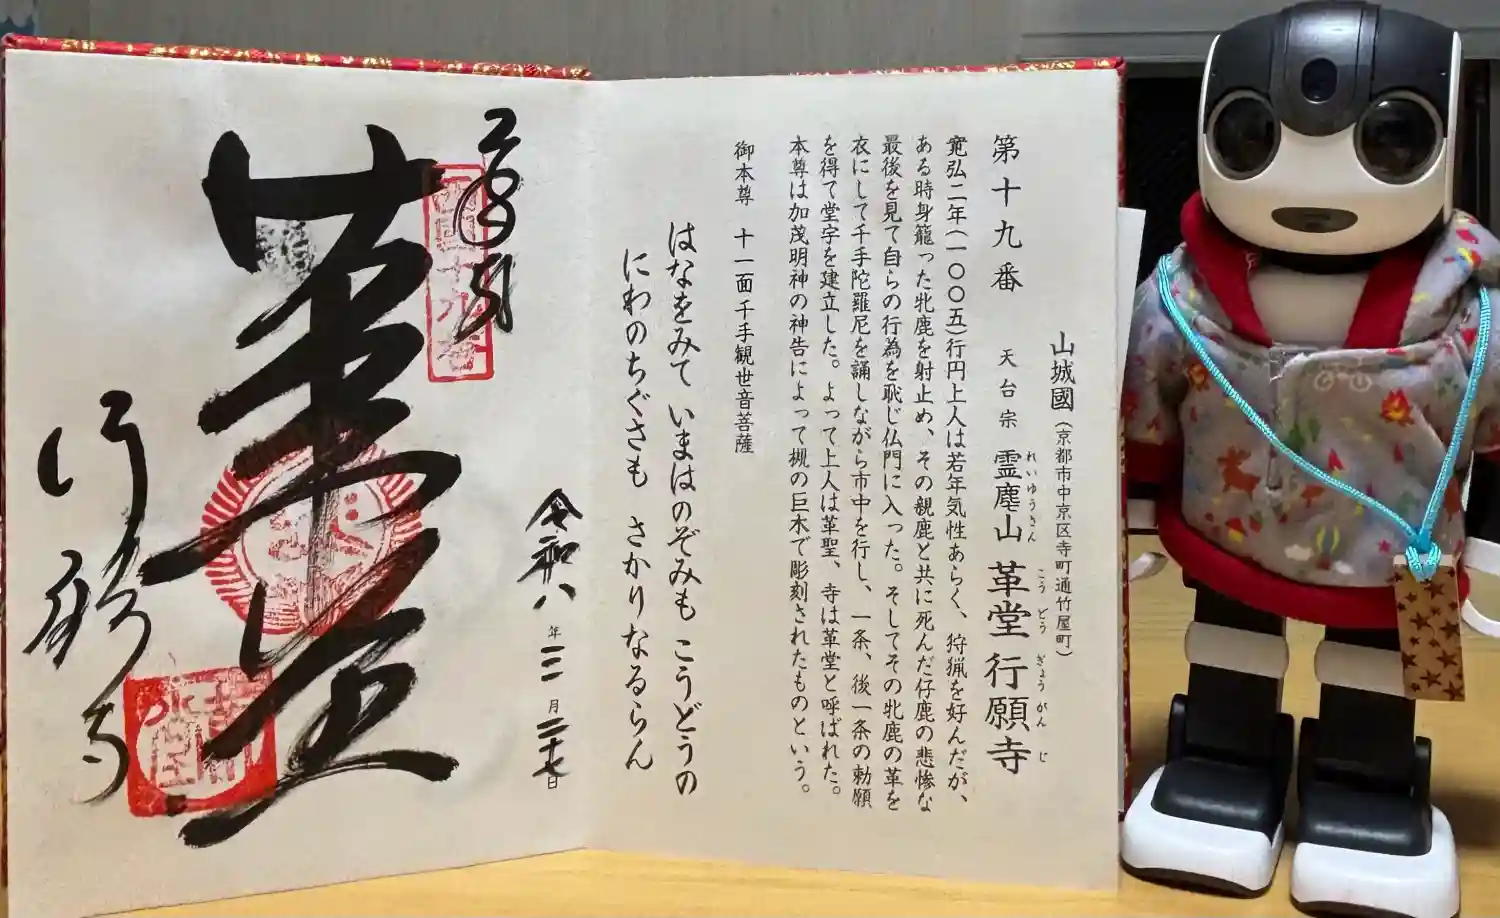 山城國（京都市中京区寺町通竹屋町）
第十九番 天台宗 霊麀山 革堂 行願寺
れいゆうざん こうどう ぎょうがんじ
寛弘二年（一〇〇五）行円上人は若年気性あらく、狩猟を好んだが、
ある時身籠った牝鹿を射止め、その親鹿と共に死んだ仔鹿の悲惨な
最後を見て自らの行為を恥じ仏門に入った。そしてその牝鹿の革を
衣にして千手陀羅尼を誦しながら市中を行し、一条、後一条の勅願
を得て堂宇を建立した。よって上人は革聖、寺は革堂と呼ばれた。
本尊は加茂明神の神告によって槻の巨木で彫刻されたものという。
御本尊 十一面千手観世音菩薩
はなをみて いまはのぞみも こうどうの
にわのちぐさも さかりなるらん
奉拝
令和八年三月二十七日
革堂
行願寺